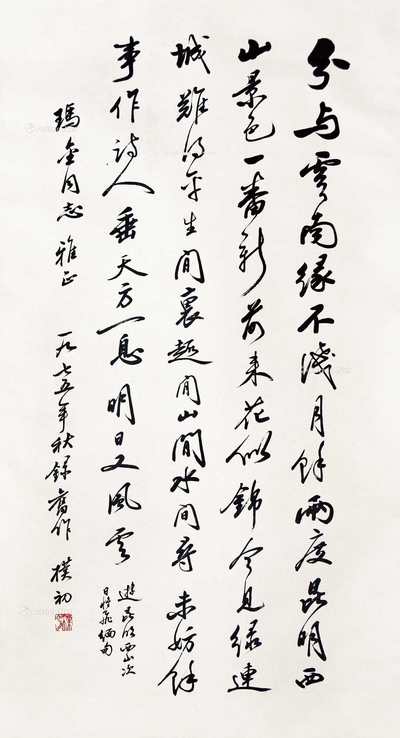 分与雲南緣不淺月餘兩度昆明西
山景色一番新前来花似錦今見緑連
城難得平生閒裏趣閒山閒水閒尋未妨餘
事作詩人垂天方一息明日又風雲
遊昆明西山次
日將飛緬甸
瑪金同志雅正 一九七五年秋録舊作 樸初